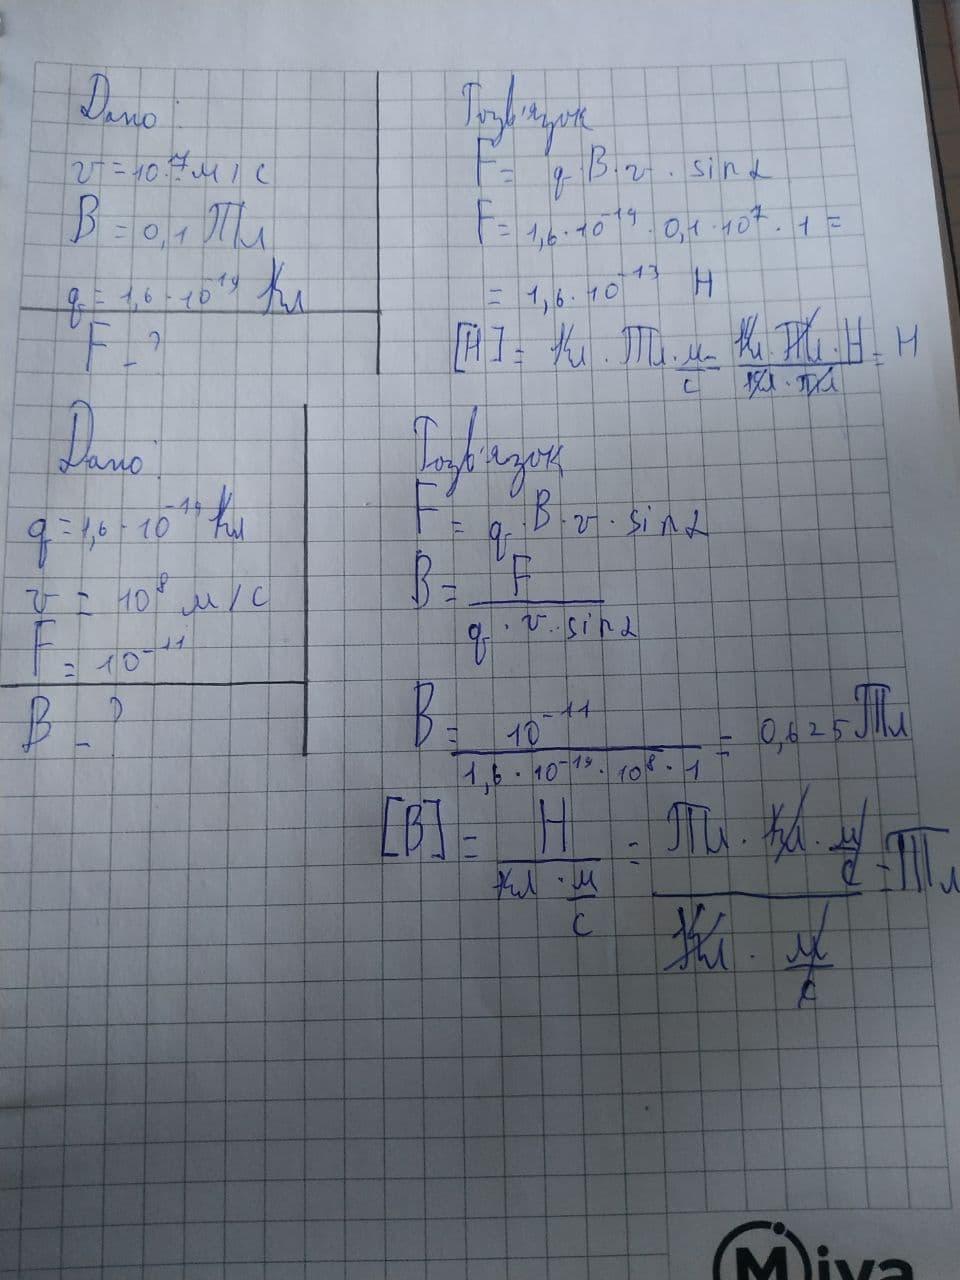 Дано:
v = 10^7 м/с
B = 0,1 Тл
q = 1,6 · 10^-19 Кл
F - ?
Розв'язок
F = q · B · v · sin α
F = 1,6 · 10^-19 · 0,1 · 10^7 · 1 =
= 1,6 · 10^-13 Н
[Н] = Кл · Тл · м/с = Кл · Тл · Н / Кл · Тл = Н
Дано:
q = 1,6 · 10^-19 Кл
v = 10^8 м/с
F = 10^-11
B - ?
Розв'язок
F = q · B · v · sin α
B = F / q · v · sin α
B = 10^-11 / 1,6 · 10^-19 · 10^8 · 1 = 0,625 Тл
[B] = Н / Кл · м/с = Тл · Кл · м/с / Кл · м/с = Тл
Miva